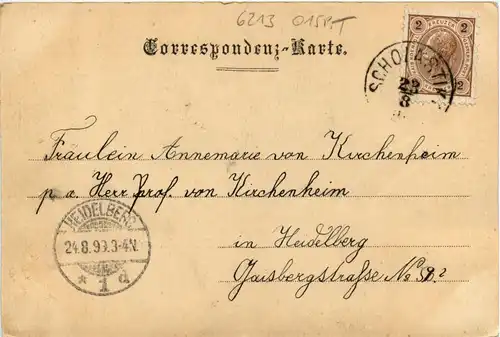 6213 015P.T
Correspondenz-Karte.
2 KREUZER 2
2
SCHO
23
8
Fräulein Annemarie von Kirchenheim
p. a. Herr Prof. von Kirchenheim
HEIDELBERG
24.8.99.3-4N.
* 1 d
in Heidelberg
Gaisbergstrasse No